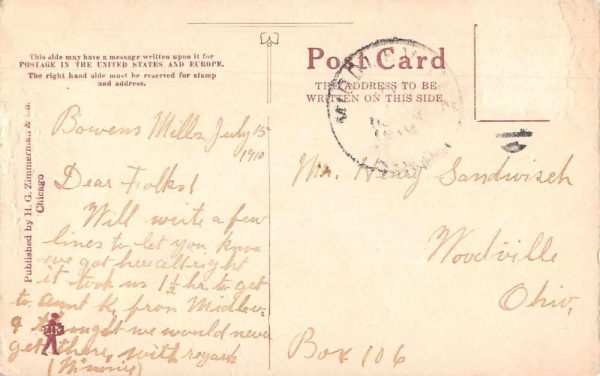 This side may have a message written upon it for
POSTAGE IN THE UNITED STATES AND EUROPE.
The right hand side must be reserved for stamp
and address.
Post Card
THE ADDRESS TO BE
WRITTEN ON THIS SIDE
Published by H. G. Zimmerman & Co.
Chicago
Bowens Mills July 15
1910
Dear Folks!
Will write a few
lines to let you know
we got here allright
it took us 1½ hr to get
to Aunt K. from
& thought we would never
get there, with regards
(Minnie)
Mr. Henry Sandwisch
Woodville
Ohio,
Box 106